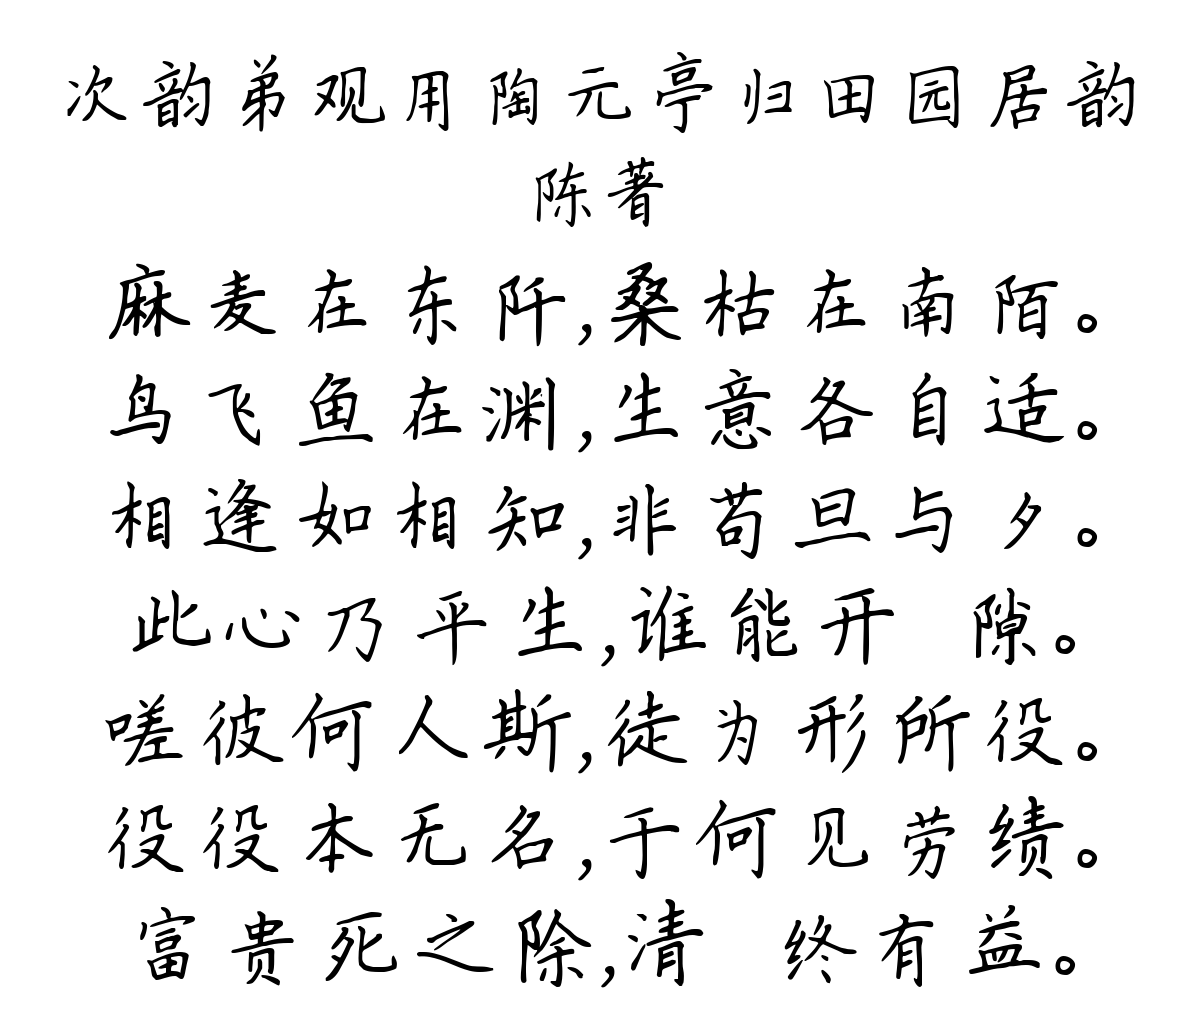 次韵弟观用陶元亭归田园居韵
陈著
麻麦在东阡,桑枯在南陌。
鸟飞鱼在渊,生意各自适。
相逢如相知,非苟旦与夕。
此心乃平生,谁能开 隙。
嗟彼何人斯,徒为形所役。
役役本无名,于何见劳绩。
富贵死之除,清 终有益。